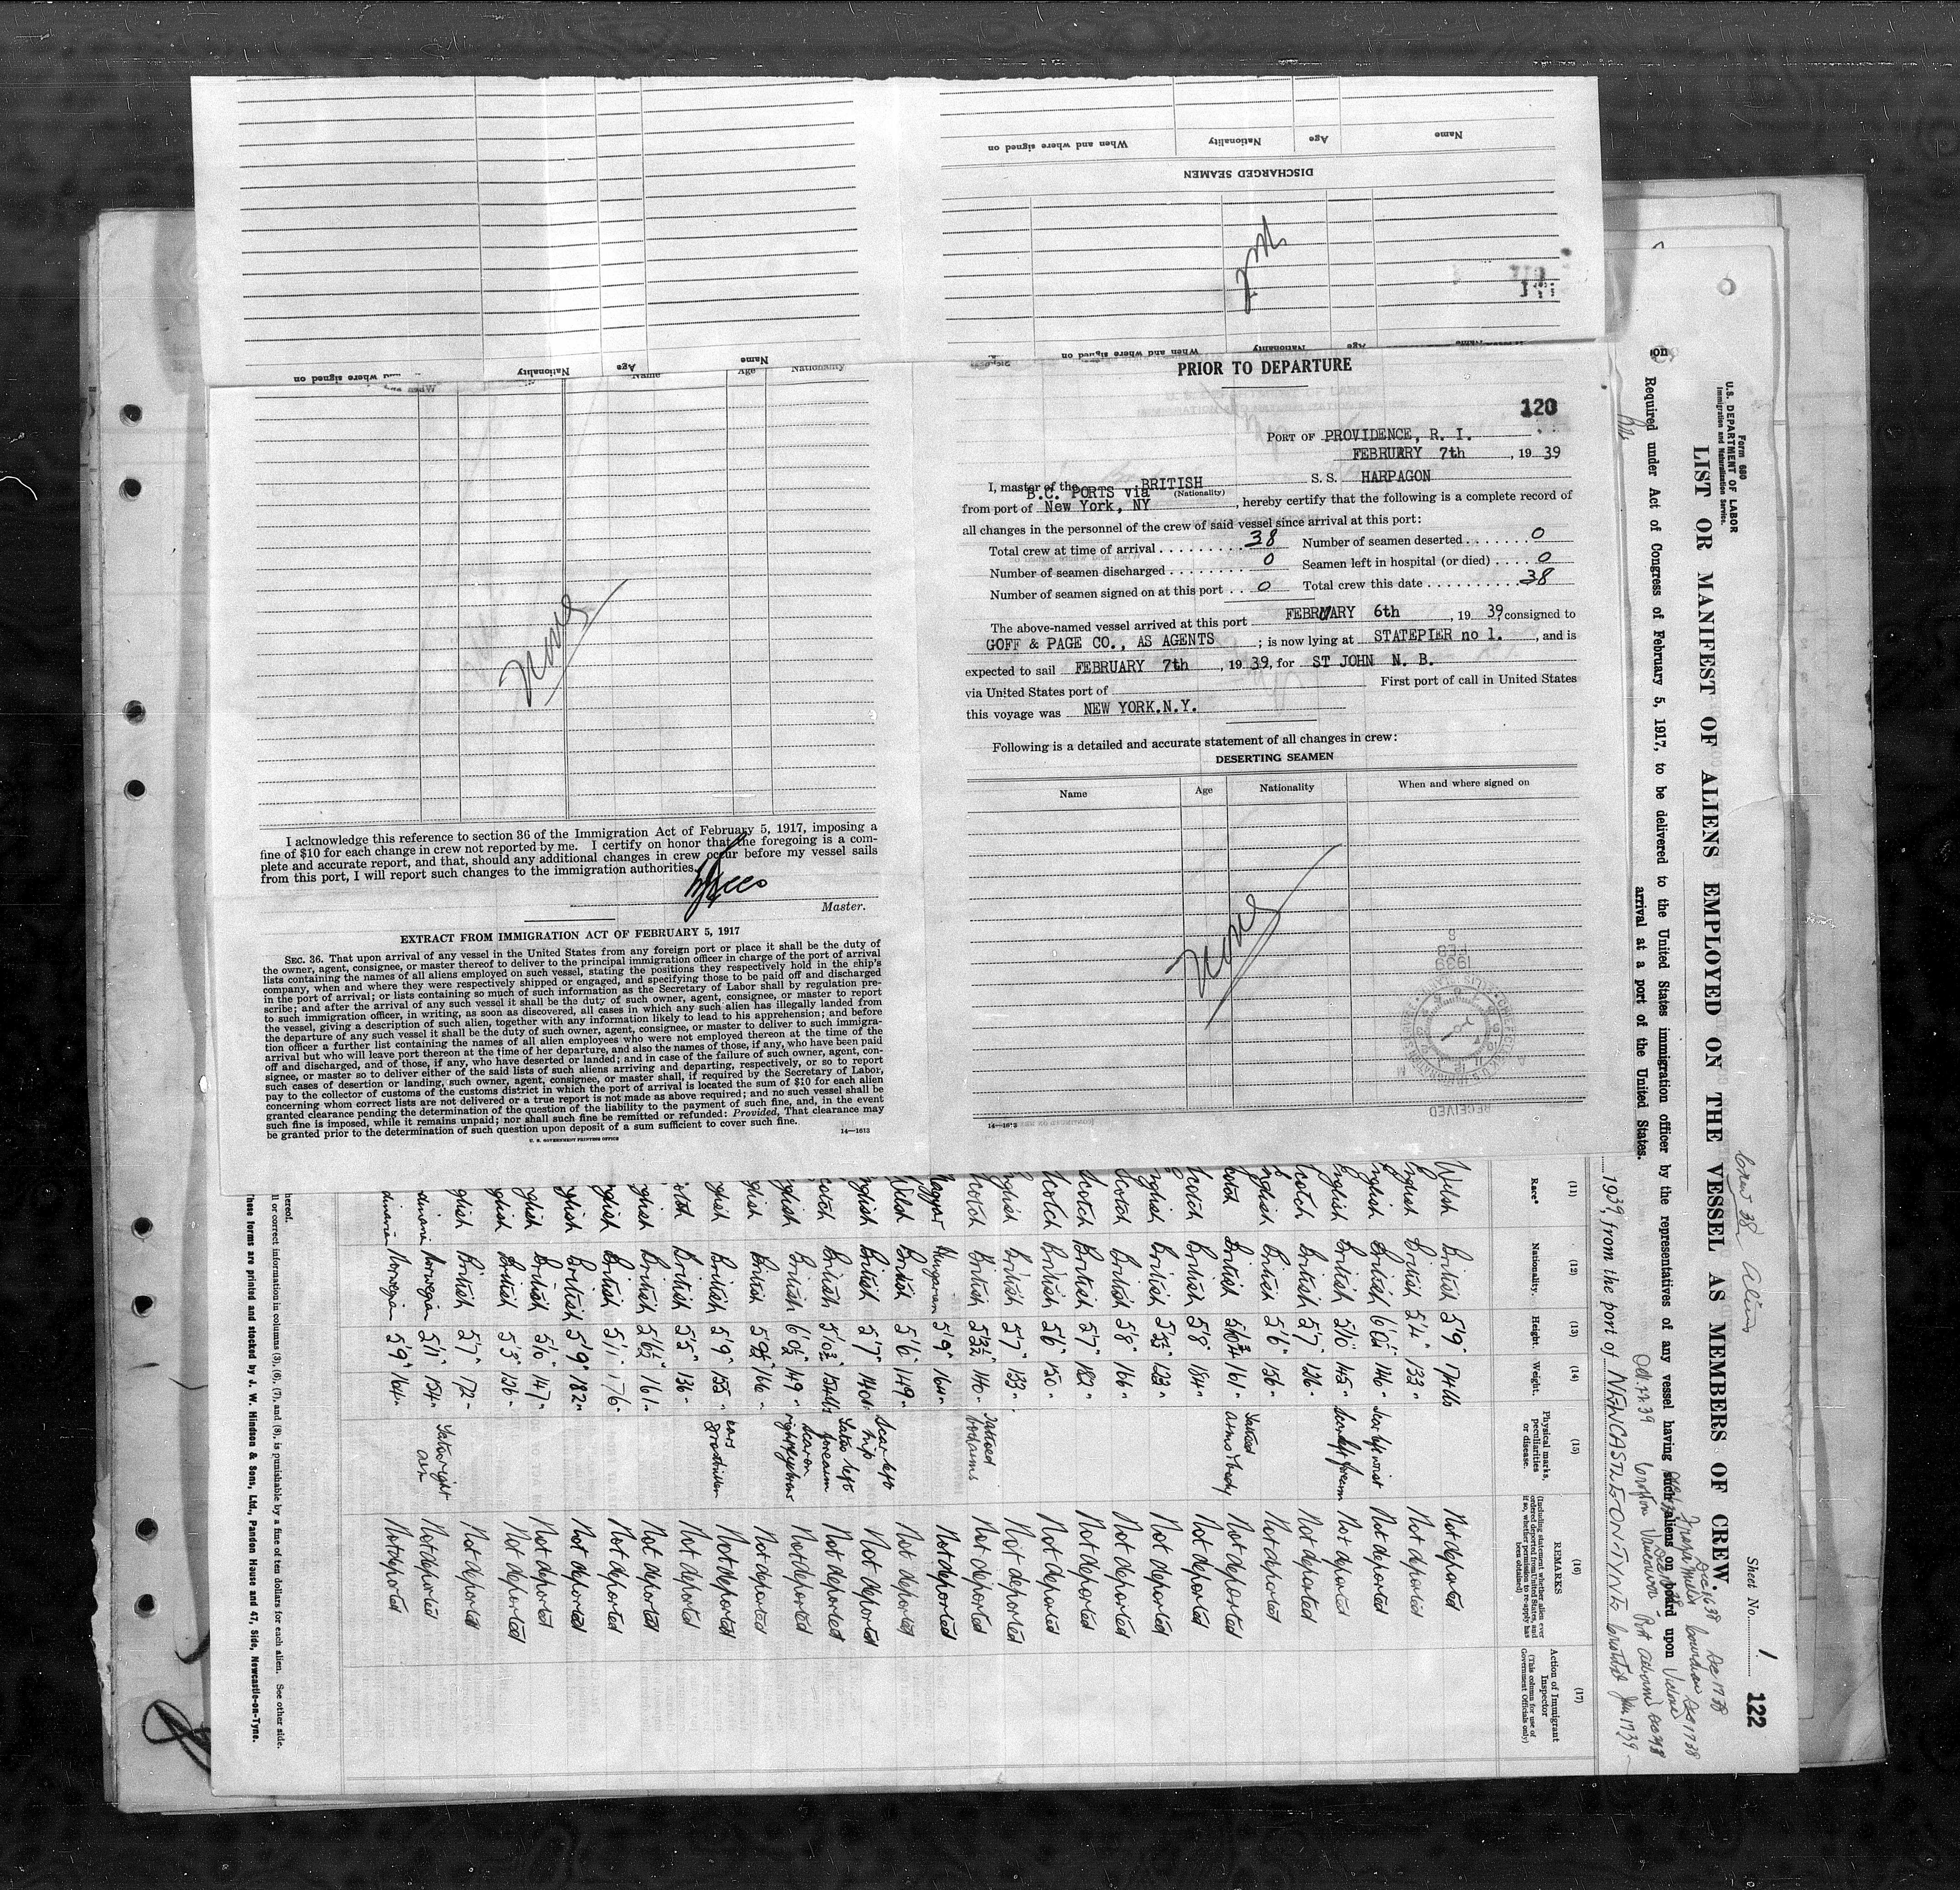 Name Age Nationality When and where signed on
DISCHARGED SEAMEN
Name Age Nationality When and where signed on
Name Age Nationality When and where signed on
PRIOR TO DEPARTURE
120
PORT OF PROVIDENCE, R. I.
FEBRUARY 7th, 1939
I, master of the BRITISH S. S. HARPAGON
(Nationality)
B.C. PORTS via
from port of New York, NY, hereby certify that the following is a complete record of
all changes in the personnel of the crew of said vessel since arrival at this port:
Total crew at time of arrival . . . . . . . . . 38 Number of seamen deserted . . . . . . 0
Number of seamen discharged . . . . . . . . 0 Seamen left in hospital (or died) . . . . 0
Number of seamen signed on at this port . . 0 Total crew this date . . . . . . . . . 38
The above-named vessel arrived at this port FEBRUARY 6th, 1939, consigned to
GOFF & PAGE CO., AS AGENTS ; is now lying at STATEPIER no 1. , and is
expected to sail FEBRUARY 7th, 1939, for ST JOHN N. B.
via United States port of First port of call in United States
this voyage was NEW YORK.N.Y.
Following is a detailed and accurate statement of all changes in crew:
DESERTING SEAMEN
Name Age Nationality When and where signed on
None
1939
FEB
RECEIVED
Name Age Nationality
None
I acknowledge this reference to section 36 of the Immigration Act of February 5, 1917, imposing a
fine of $10 for each change in crew not reported by me. I certify on honor that the foregoing is a com-
plete and accurate report, and that, should any additional changes in crew occur before my vessel sails
from this port, I will report such changes to the immigration authorities.
Master.
EXTRACT FROM IMMIGRATION ACT OF FEBRUARY 5, 1917
SEC. 36. That upon arrival of any vessel in the United States from any foreign port or place it shall be the duty of
the owner, agent, consignee, or master thereof to deliver to the principal immigration officer in charge of the port of arrival
lists containing the names of all aliens employed on such vessel, stating the positions they respectively hold in the ship's
company, when and where they were respectively shipped or engaged, and specifying those to be paid off and discharged
in the port of arrival; or lists containing so much of such information as the Secretary of Labor shall by regulation pre-
scribe; and after the arrival of any such vessel it shall be the duty of such owner, agent, consignee, or master to report
to such immigration officer, in writing, as soon as discovered, all cases in which any such alien has illegally landed from
the vessel, giving a description of such alien, together with any information likely to lead to his apprehension; and before
the departure of any such vessel it shall be the duty of such owner, agent, consignee, or master to deliver to such immigra-
tion officer a further list containing the names of all alien employees who were not employed thereon at the time of the
arrival but who will leave port thereon at the time of her departure, and also the names of those, if any, who have been paid
off and discharged, and of those, if any, who have deserted or landed; and in case of the failure of such owner, agent, con-
signee, or master so to deliver either of the said lists of such aliens arriving and departing, respectively, or so to report
such cases of desertion or landing, such owner, agent, consignee, or master shall, if required by the Secretary of Labor,
pay to the collector of customs of the customs district in which the port of arrival is located the sum of $10 for each alien
concerning whom correct lists are not delivered or a true report is not made as above required; and no such vessel shall be
granted clearance pending the determination of the question of the liability to the payment of such fine, and, in the event
such fine is imposed, while it remains unpaid; nor shall such fine be remitted or refunded: Provided, That clearance may
be granted prior to the determination of such question upon deposit of a sum sufficient to cover such fine.
14—1613
U. S. GOVERNMENT PRINTING OFFICE
Form 680
U.S. DEPARTMENT OF LABOR
Immigration and Naturalization Service.
Sheet No. 1
122
LIST OR MANIFEST OF ALIENS EMPLOYED ON THE VESSEL AS MEMBERS OF CREW.
Crew 38 Aliens
Required under Act of Congress of February 5, 1917, to be delivered to the United States immigration officer by the representatives of any vessel having such aliens on board upon
arrival at a port of the United States.
1939, from the port of NEWCASTLE-ON-TYNE
(11) (12) (13) (14) (15) (16) (17)
Race* Nationality. Height. Weight. Physical marks, peculiarities or disease. REMARKS (Including statement whether alien ever ordered deported from United States, and if so, whether permission to re-apply has been obtained) Action of Immigrant Inspector (This column for use of Government Officials only)
Welsh British 5'9" 174 lbs Not deported
English British 5'4" 133 Not deported
English British 6'0½" 146 Scar left wrist Not deported
English British 5'10" 145 Scar left forearm Not deported
Scotch British 5'7" 126 Not deported
English British 5'6" 156 Not deported
Scotch British 161 Tattooed arms & body Not deported
Scotch British 5'8" 184 Not deported
English British 123 Not deported
Scotch British 5'8" 166 Not deported
Scotch British 5'7" 182 Not deported
Scotch British 5'6" 150 Not deported
English British 5'7" 133 Not deported
Scotch British 5'3½" 140 Tattooed both arms Not deported
Magyar Hungarian 5'9" 164 Not deported
Welsh British 5'6" 149 Not deported
English British 5'7" 140 Scar left hip Not deported
Scotch British 154 Tatoo left forearm Not deported
English British 149 Scar on right eyebrow Not deported
English British 166 Not deported
English British 5'9" 155 Not deported
British 5'5" 136 Not deported
English British 5'6½" 161 Not deported
English British 5'11" 176 Not deported
English British 5'9" 182 Not deported
English British 5'10" 147 Not deported
English British 5'3" 136 Not deported
English British 5'7" 172 Not deported
Norwegian 5'11" 154 Tatoo right arm Not deported
Norwegian 5'9" 164 Not deported
hereof.
ll or correct information in columns (3), (6), (7), and (8), is punishable by a fine of ten dollars for each alien. See other side.
These forms are printed and stocked by J. W. Hindson & Sons, Ltd., Pandon House and 47, Side, Newcastle-on-Tyne.